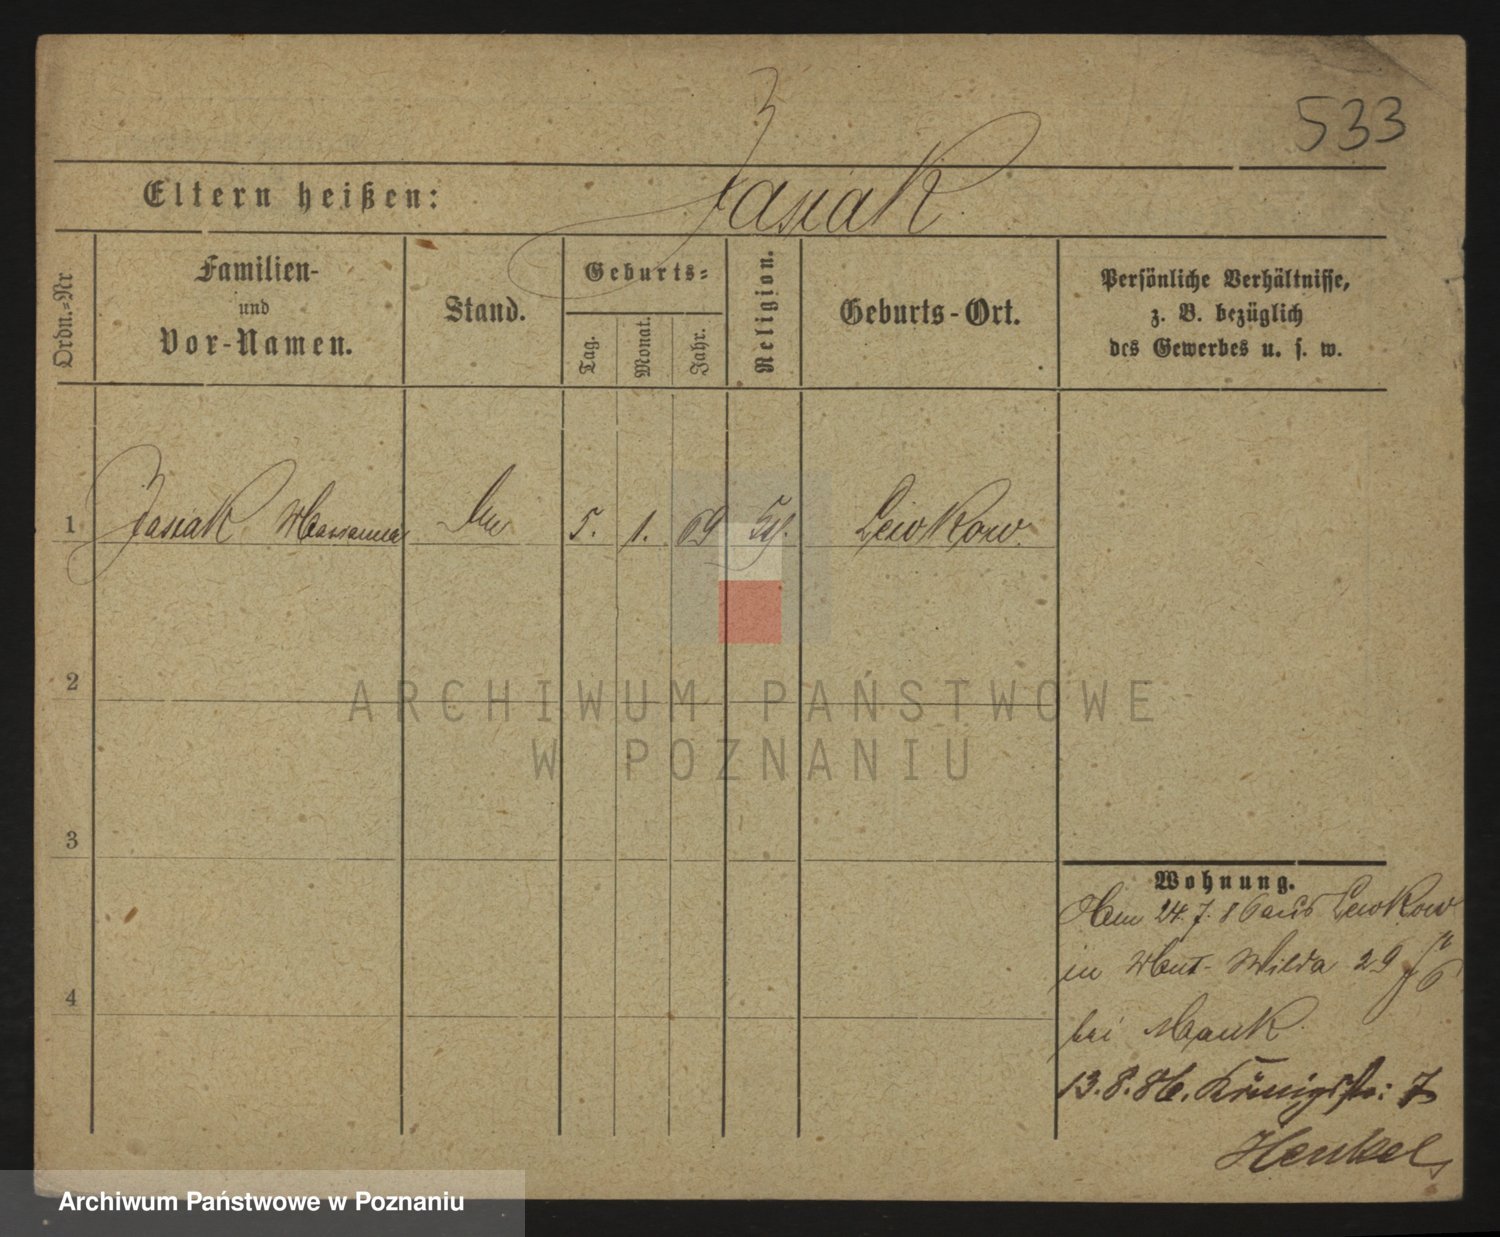 533
Eltern heißen: Jasiak
Ordn.-Nr
Familien-
und
Vor-Namen.
Stand.
Geburts-
Tag.
Monat.
Jahr.
Religion.
Geburts-Ort.
Persönliche Verhältnisse,
z. B. bezüglich
des Gewerbes u. s. w.
1 Jasiak Marianna 5. 1. 69 Lewkow
2
3
4
ARCHIWUM PAŃSTWOWE
W POZNANIU
Wohnung.
24.7.86 aus Lewkow
in Wilda 29
bei Mank
13.8.86. Königstr: 7
Henkel
Archiwum Państwowe w Poznaniu